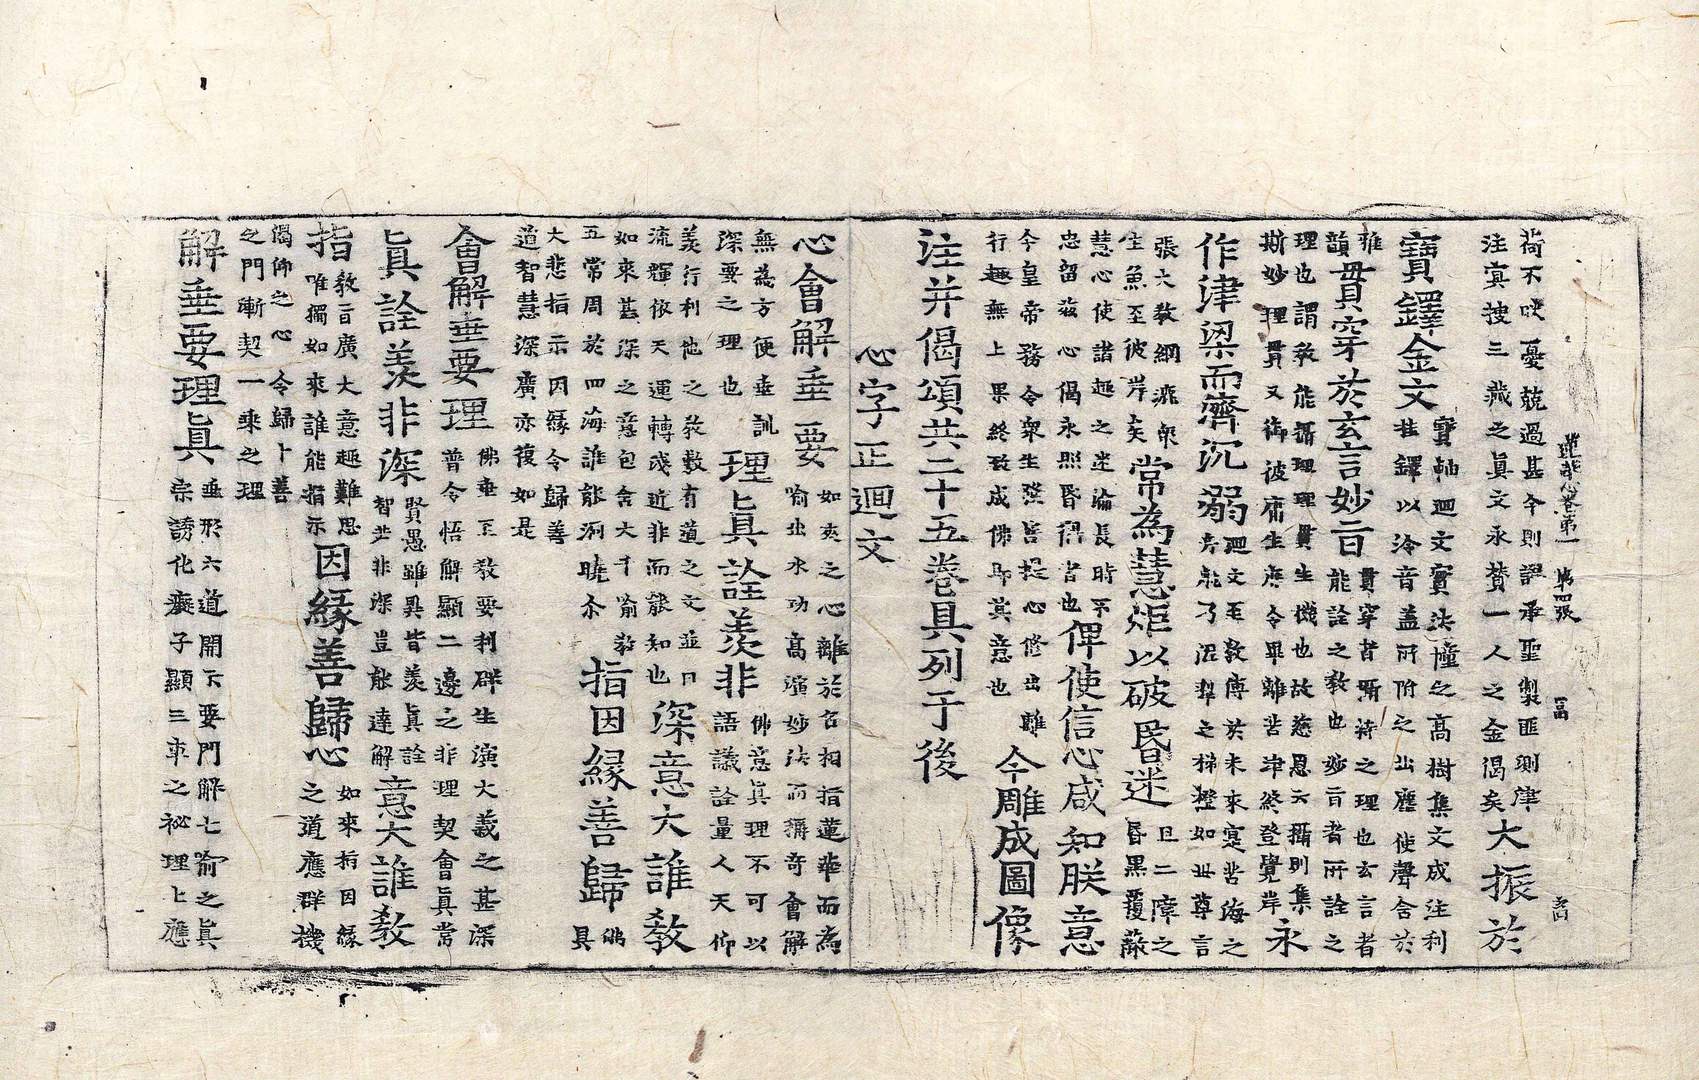 荷不咲憂競過甚今則謬承聖製匪測津
注寘搜三藏之眞文永贊一人之金偈矣大振於
蓮華心卷第一 第四張 冨
寶鐸金文寶軸廻文實法幢之高樹集文成注利
桂鐸以洽音盖所附之出塵使聲含於
雅
韻貫穿於玄言妙旨貫穿者所詮之理也玄言者
能詮之敎也妙旨者所詮之
理也謂敎能攝理理貫生機也故慈恩云攝則集
斯妙理貫又御彼庸生庶令畢離苦津終登覺岸永
作津梁而濟沉溺廻文至敎傳於未來寔苦海之
乃泥犁之梯橙如世尊言
張大敎綱漉衆
生魚至彼岸矣常為慧炬以破昏迷且二障之
昏黑覆蔽
慧心使諸趣之迷淪長時不
忠留茲心偈永照昏得皆也俾使信心咸知朕意
今皇帝務令衆生發菩提心修出離
行趣無上果終致成佛即其意也今雕成圖像
注并偈頌共二十五卷具列于後
心字正廻文
心會解垂要如來之心離於名相指蓮華而為
喻出水功高演妙法而稱奇會解
無為方便垂訓
深要之理也理眞詮羨非佛意眞理不可以
語議詮量人天仰
羨行利他之敎數有道之文並日
流輝依天運轉或近非而能知也深意大誰敎
如來甚深之意包含大千喻敎
五常周於四海誰能洞曉尒指因緣善歸佛
具
大悲指示因緣令歸善
道智慧深廣亦復如是
會解垂要理佛垂至敎要利群生演大義之甚深
普令悟解顯二邊之非理契會眞常
眞詮羨非深賢愚雖異皆羨眞詮
智若非深豈能達解意大誰敎
指敎旨廣大意趣難思
唯獨如來誰能指示因緣善歸心如來指因緣
之道應群機
渴仰之心令歸十善
之門漸契一乘之理
解垂要理眞垂形六道開示要門解七喻之眞
宗誘化癡子顯三車之祕理上應